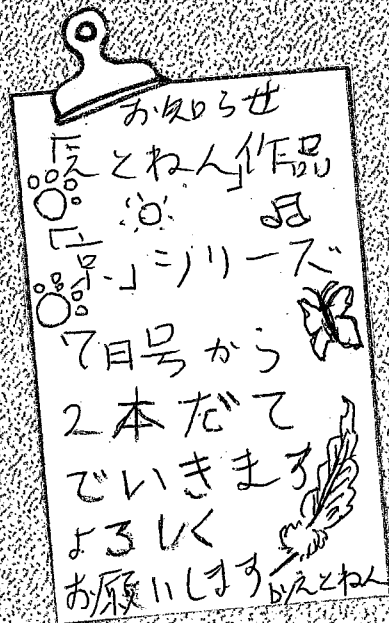 お知らせ
「えとねん」作品
シリーズ
7日号から
2本だて
でいきます
よろしく
お願いします byえとねん